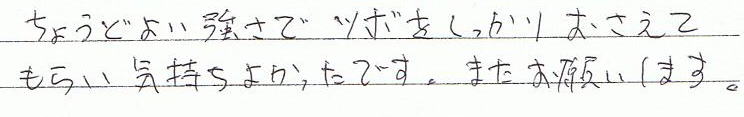 ちょうどよい強さでツボをしっかりおさえて
もらい気持ちよかったです。またお願いします。